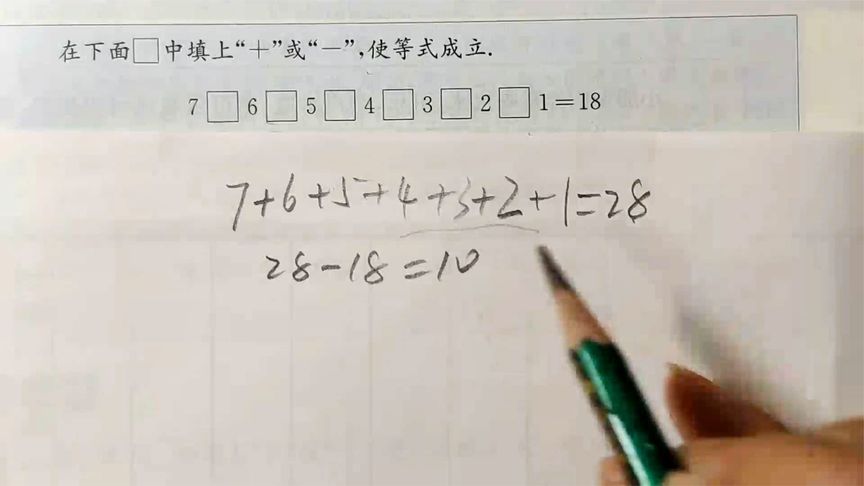 在下面□中填上“＋”或“－”,使等式成立.
7□6□5□4□3□2□1=18
7+6+5+4+3+2+1=28
28-18=10